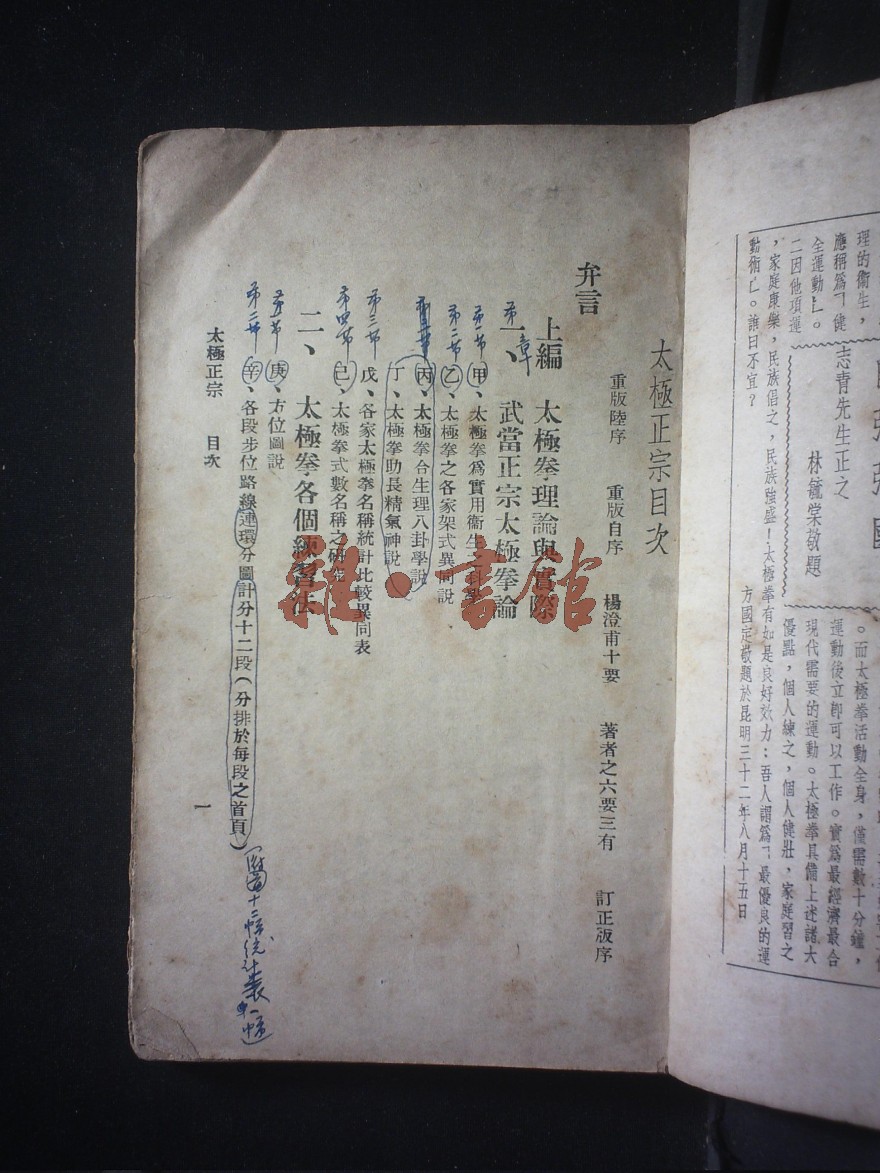 理的衞生，
應稱爲「健
全運動」。
二因他項運
志青先生正之
林毓棠敬題
。而太極拳活動全身，僅需數十分鐘，
運動後立卽可以工作。實爲最經濟最合
現代需要的運動。太極拳具備上述諸大
優點，個人練之，個人健壯，家庭習之
，家庭康樂，民族倡之，民族強盛！太極拳有如是良好效力：吾人謂爲「最優良的運
動術」。誰曰不宜？
方國定敬題於昆明三十二年八月十五日
太極正宗目次
重版陸序　重版自序　楊澄甫十要　著者之六要三有　訂正版序
弁言
上編　太極拳理論與實際
第一章
一、　武當正宗太極拳論
第一節
甲、太極拳爲實用衞生之科學
第二節
乙、太極拳之各家架式異同說
丙、太極拳合生理八卦學說
丁、太極拳助長精氣神說
第三節
戊、各家太極拳名稱統計比較異同表
第四節
己、太極拳式數名稱之研究
二、　太極拳各個練習法
第一節
庚、方位圖說
第二節
辛、各段步位路線連環分圖計分十二段（分排於每段之首頁）
太極正宗　目次
一
雜·書館